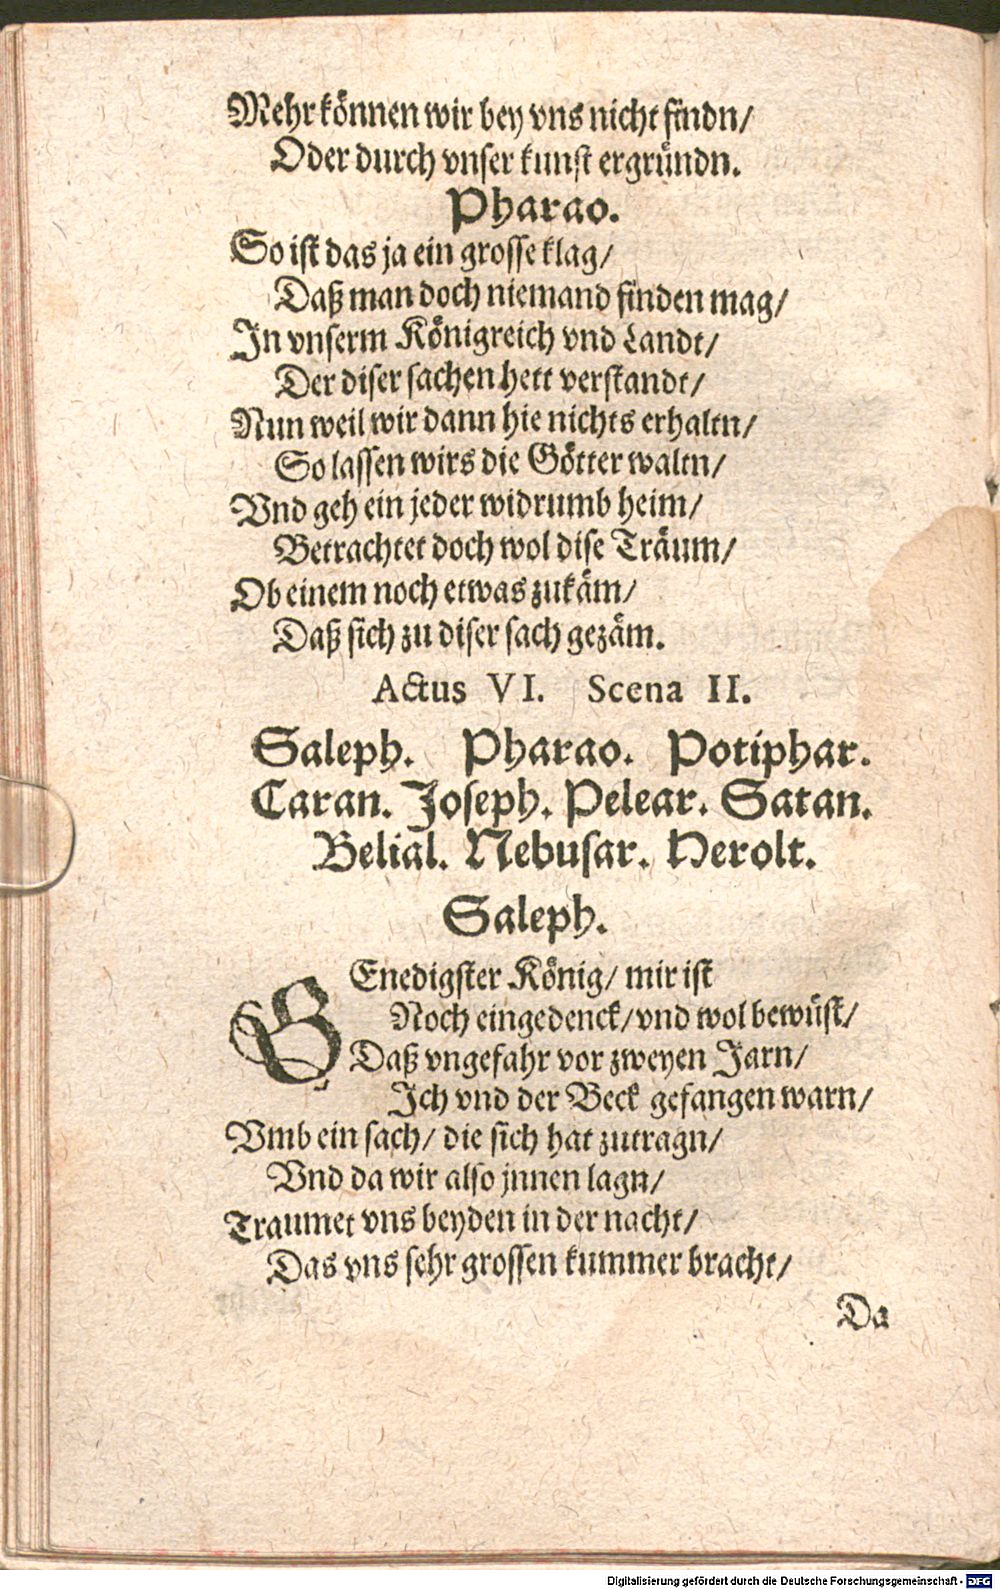 Mehr können wir bey vns nicht findn/
Oder durch vnser kunst ergründn.
Pharao.
So ist das ja ein grosse klag/
Daß man doch niemand finden mag/
In vnserm Königreich vnd Landt/
Der diser sachen hett verstandt/
Nun weil wir dann hie nichts erhaltn/
So lassen wirs die Götter waltn/
Vnd geh ein jeder widrumb heim/
Betrachtet doch wol dise Träum/
Ob einem noch etwas zukäm/
Daß sich zu diser sach gezäm.
Actus VI. Scena II.
Saleph. Pharao. Potiphar.
Caran. Joseph. Pelear. Satan.
Belial. Nebusar. Herolt.
Saleph.
GEnedigster König/ mir ist
Noch eingedenck/ vnd wol bewüst/
Daß vngefahr vor zweyen Jarn/
Ich vnd der Beck gefangen warn/
Vmb ein sach/ die sich hat zutragn/
Vnd da wir also jnnen lagn/
Traumet vns beyden in der nacht/
Das vns sehr grossen kummer bracht/
Da
Digitalisierung gefördert durch die Deutsche Forschungsgemeinschaft - DFG